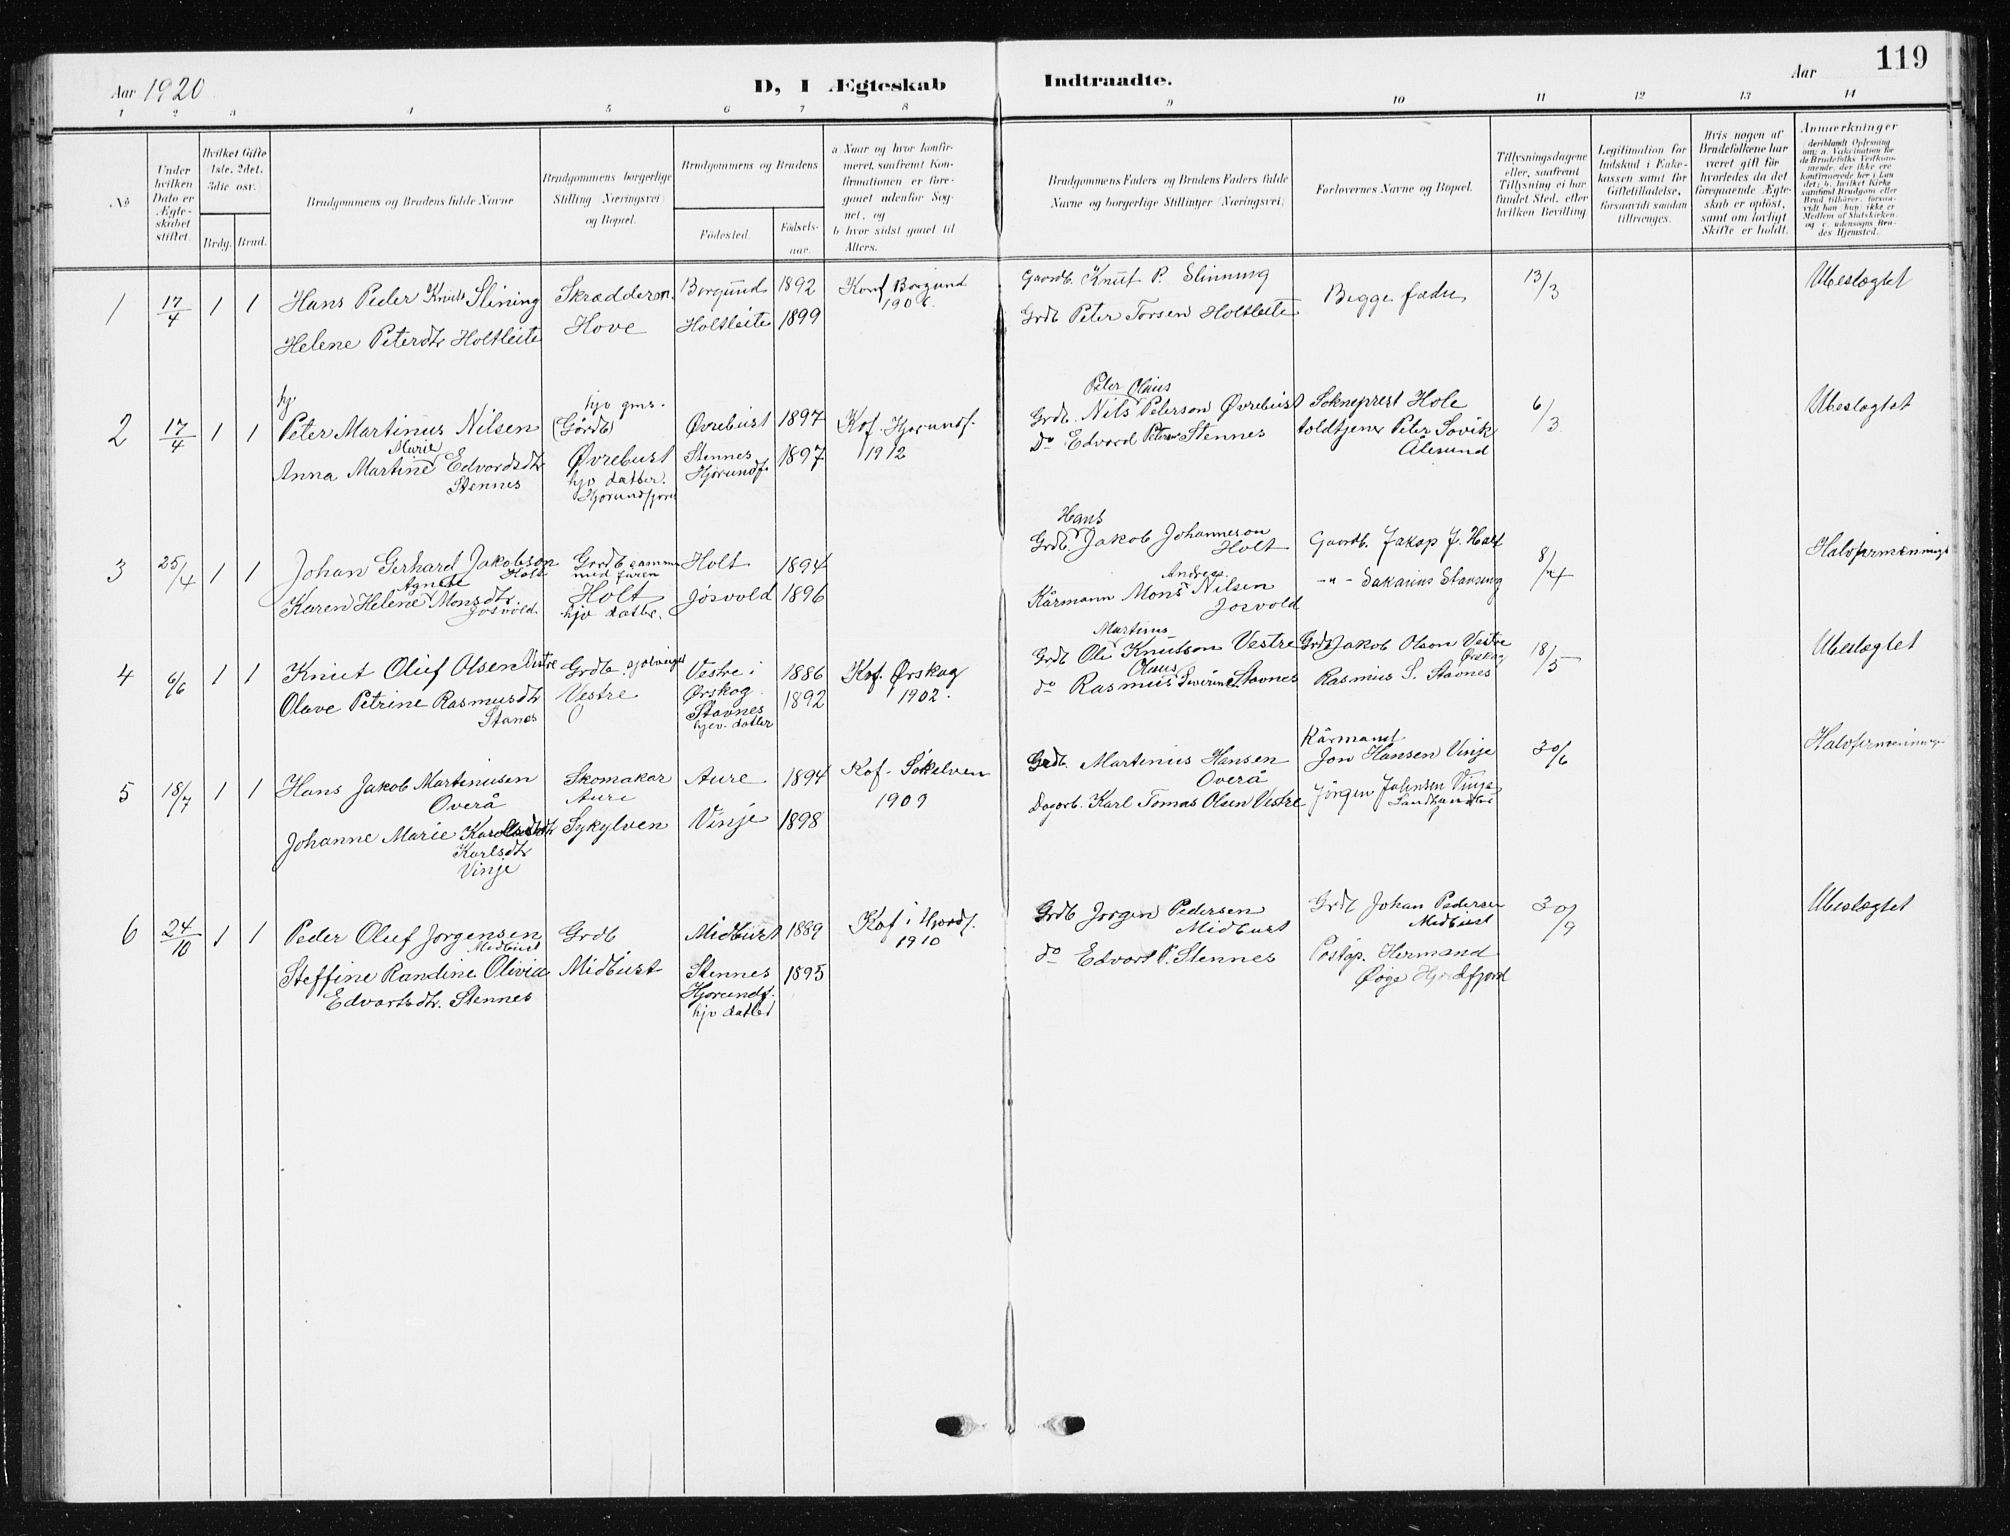 Aar 1920
D, I Ægteskab Indtraadte.
Aar
119
1 2 3 4 5 6 7 8 9 10 11 12 13 14
No
Under hvilken Dato er Ægteskabet stiftet.
Hvilket Gifte 1ste. 2det. 3die osv.
Brdg. Brud.
Brudgommens og Brudens fulde Navne
Brudgommens borgerlige Stilling (Næringsvei) og Bopæl.
Brudgommens og Brudens
Fødested.
Fødselsaar.
a Naar og hvor konfirmeret, saafremt Konfirmationen er foregaaet udenfor Sognet, og
b hvor sidst gaaet til Alters.
Brudgommens Faders og Brudens Faders fulde Navne og borgerlige Stillinger (Næringsvei)
Forlovernes Navne og Bopæl.
Tillysningsdagene eller, saafremt Tillysning ei har fundet Sted, efter hvilken Bevilling
Legitimation for Indskud i Enkekassen samt for Giftetilladelse, forsaavidt saadan tiltrænges.
Hvis nogen af Brudefolkene har været gift før hvorledes da det foregaaende Ægteskab er opløst, samt om lovligt Skifte er holdt.
Anmærkninger
deriblandt Oplysning om: a. Vakcination for de Brudefolks Vedkommende, der ikke ere konfirmerede her i Landet; b. hvilket Kirkesamfund Brudgom eller Brud tilhører, forsaavidt han, hun, ikke er Medlem af Statskirken, og c. udensogns Brudes Hjemsted.
1 17/4 1 1 Hans Peder Knuts Slining
Helene Petersdtr Holtleite
Skrædder
Hove
Borgund 1892
Holtleite 1899
Konf Borgund
Gaardb. Knut P. Slinning
Grdb Peter Torsen Holtleite
Begge fædre
13/3
Ubeslægtet
2 17/4 1 1 hj.
Peter Martinus Nilsen
Marie
Anna Martine Edvardsdtr
Stennes
hjv gms.
(Gårdb)
Øvrebust
hjv datter.
Hjorundfjord
Øvrebust 1897
Stennes 1897
Hjørundf.
Kof. Hjorundf.
1912
Peter Olaus
Grdb. Nils Peterson Øvrebust
Do Edvard Peters Stennes
Sokneprest Hole
toldtjener Peter Sovik
Ålesund
6/3
Ubeslægtet
3 25/4 1 1 Johan Gerhard Jakobson
Holt
Agnete
Karen Helene Monsdtr.
Josvold.
Grdb samme
med faren
Holt
hjv datter.
Holt 1894
Jósvold 1896
Hans
Grdb. Jakob Johanneson
Holt
Andreas
Kårmann Mons Nilsen
Josvold
Gaardb. Jakop J. Holt
-"- Sakarius
8/4
Halvfirmenning
4 6/6 1 1 Knut Oluf Olsen Vestre
Olave Petrine Rasmusdtr
Stanes
Grdb. sjølveiger
Vestre
Vestre i 1886
Ørskog 1892
Stavnes
hjev. datter
Kof. Ørskog
1902.
Martinus
Grdb Ole Knutson Vestre
Olaus
do Rasmus Severins. Stavnes
Grdb Jakob Olson Vestre
Ørskog
Rasmus S. Stavnes
18/5
Ubeslægtet
5 18/7 1 1 Hans Jakob Martinusen
Overå
Johanne Marie
Karlsdtr
Vinje
Skomakar
Aure
Sykylven
Aure 1894
Vinje 1898
Kof. Søkelven
1909
Grdb. Martinus Hansen
Overå
Dagarb. Karl Tomas Olsen Vestre
Kårmand
Jon Hansen Vinje
Jørgen Johnsen Vinje
Landhandler
30/6
Halvfirmenning
6 24/10 1 1 Peder Oluf Jorgensen
Midtbust
Steffine Randine Olivia
Edvartsdtr. Stennes
Grdb
Midbust
Midbust 1889
Stennes 1895
Hjorundf.
hjv datter
Kof i Hjordf.
1910
Grdb Jorgen Pedersen
Midbust
do Edvart P. Stennes
Grdb Johan Pedersen
Midbust
Postop. Hermand
30/9
Ubeslægtet